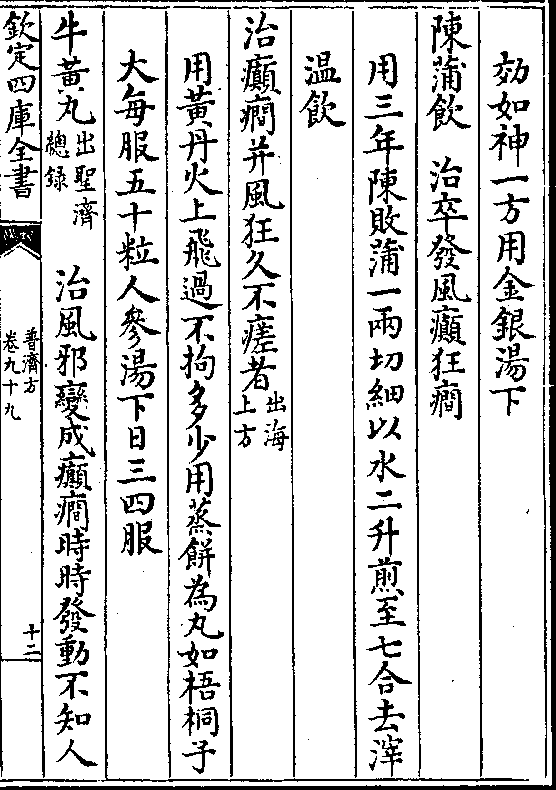 効如神一方用金銀湯下
陳蒲飲　治卒發風癲狂癇
用三年陳敗蒲一兩切細以水二升煎至七合去滓
温飲
治癲癇并風狂久不瘥者出海上方
用黃丹火上飛過不拘多少用蒸餅為丸如梧桐子
大每服五十粒人參湯下日三四服
牛黃丸出聖濟總錄　治風邪變成癲癇時時發動不知人
欽定四庫全書
普濟方
卷九十九
十二